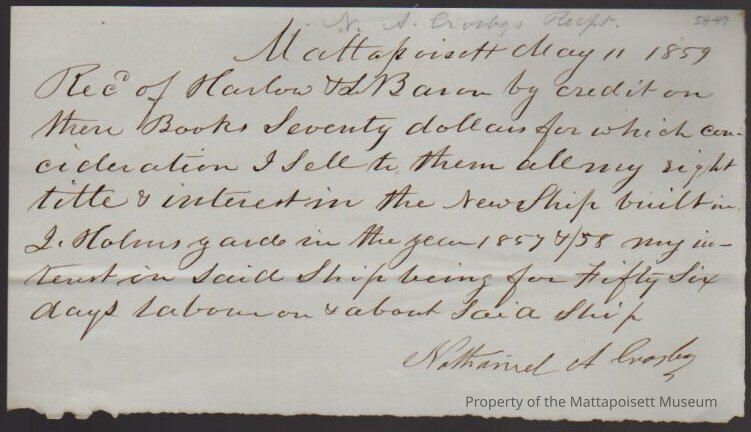 N. A. Crosbys Recpt.
Mattapoisett May 11 1859
Recd of Harlow & LeBaron by credit on
there Books Seventy dollars for which con-
cideration I Sell to them all my right
title & interest in the New Ship built in
J. Holms yard in the year 1857 & /58 my in-
terest in Said Ship being for Fifty Six
days labour on & about Said Ship
Nathaniel A Crosby
Property of the Mattapoisett Museum